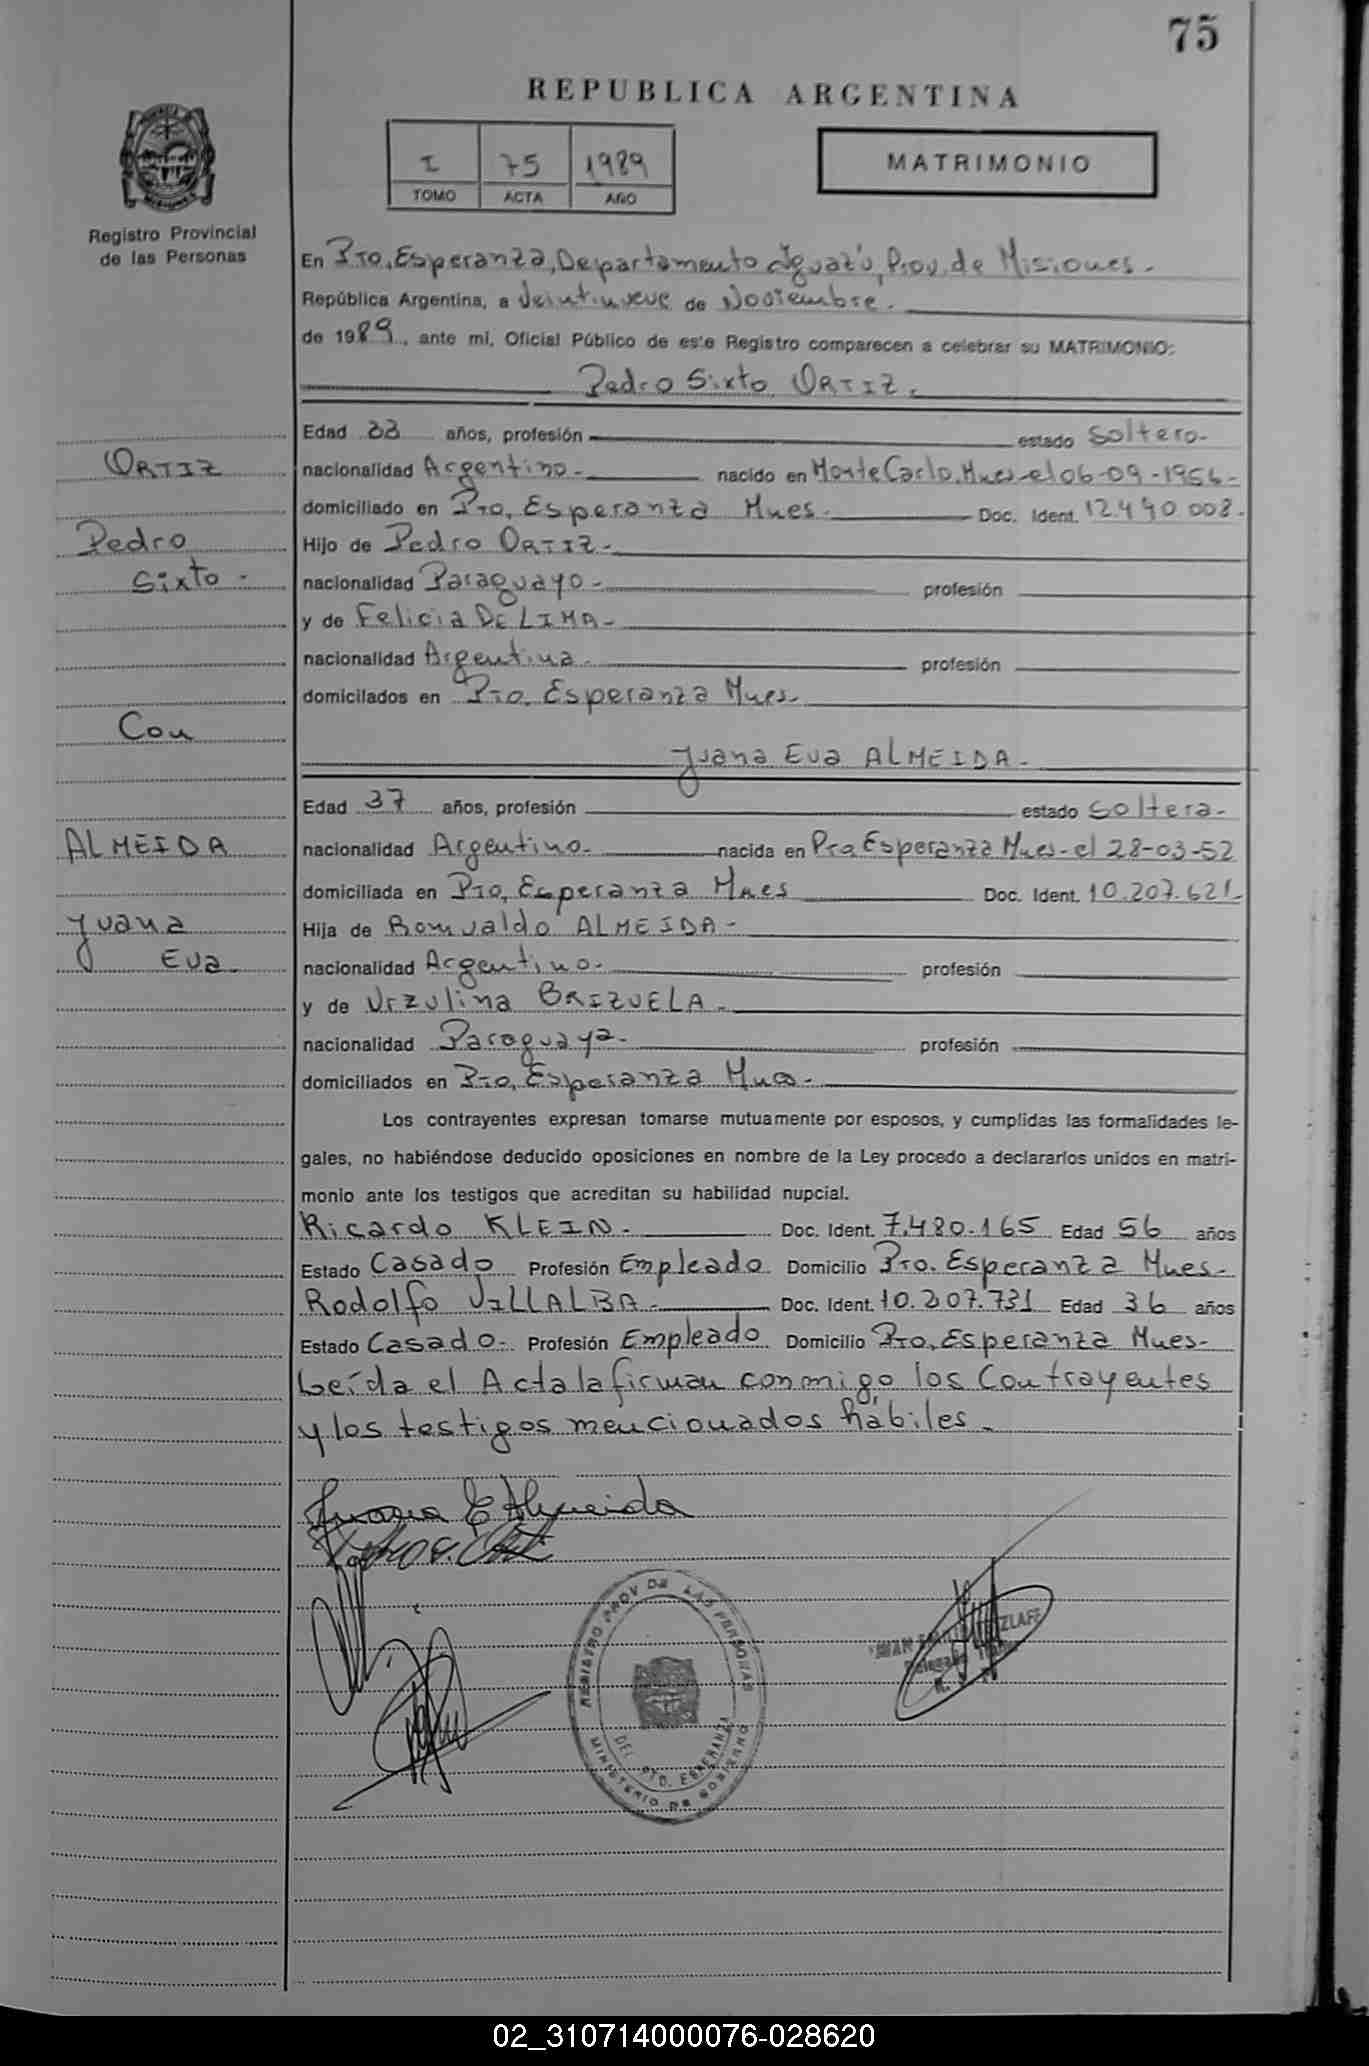 75
REPUBLICA ARGENTINA
I 75 1989
TOMO ACTA AÑO
MATRIMONIO
Registro Provincial
de las Personas
En Pto. Esperanza, Departamento Iguazú, Prov. de Misiones.-
República Argentina, a Veintinueve de Noviembre.
de 1989., ante mi, Oficial Público de este Registro comparecen a celebrar su MATRIMONIO:
Pedro Sixto ORTIZ.
Edad 33 años, profesión estado Soltero-
nacionalidad Argentino.- nacido en Monte Carlo, Mnes-el 06-09-1956-
domiciliado en Pto, Esperanza Mnes.- Doc. Ident. 12.490.008.
Hijo de Pedro ORTIZ.-
nacionalidad Paraguayo.- profesión
y de Felicia DE LIMA.-
nacionalidad Argentina.- profesión
domicilados en Pto. Esperanza Mnes.-
ORTIZ
Pedro
Sixto -
Con
ALMEIDA
Juana
Eva.
Juana Eva ALMEIDA.-
Edad 37 años, profesión estado Soltera-
nacionalidad Argentino.- nacida en Pto Esperanza Mnes-el 28-03-52
domiciliada en Pto, Esperanza Mnes Doc. Ident. 10.207.621-
Hija de Romualdo ALMEIDA-
nacionalidad Argentino.- profesión
y de Urzulina BRIZUELA.-
nacionalidad Paraguaya- profesión
domiciliados en Pto, Esperanza Mnes-
Los contrayentes expresan tomarse mutuamente por esposos, y cumplidas las formalidades le-
gales, no habiéndose deducido oposiciones en nombre de la Ley procedo a declararlos unidos en matri-
monio ante los testigos que acreditan su habilidad nupcial.
Ricardo KLEIN.- Doc. Ident. 7.480.165 Edad 56 años
Estado Casado Profesión Empleado Domicilio Pto. Esperanza Mnes-
Rodolfo VILLALBA.- Doc. Ident. 10.207.731 Edad 36 años
Estado Casado- Profesión Empleado Domicilio Pto, Esperanza Mnes-
Leída el Acta la firman conmigo los Contrayentes
y los testigos mencionados hábiles.-
Juana E Almeida
REGISTRO PROV DE LAS PERSONAS
DEL PTO. ESPERANZA
MINISTERIO DE GOBIERNO
02_310714000076-028620